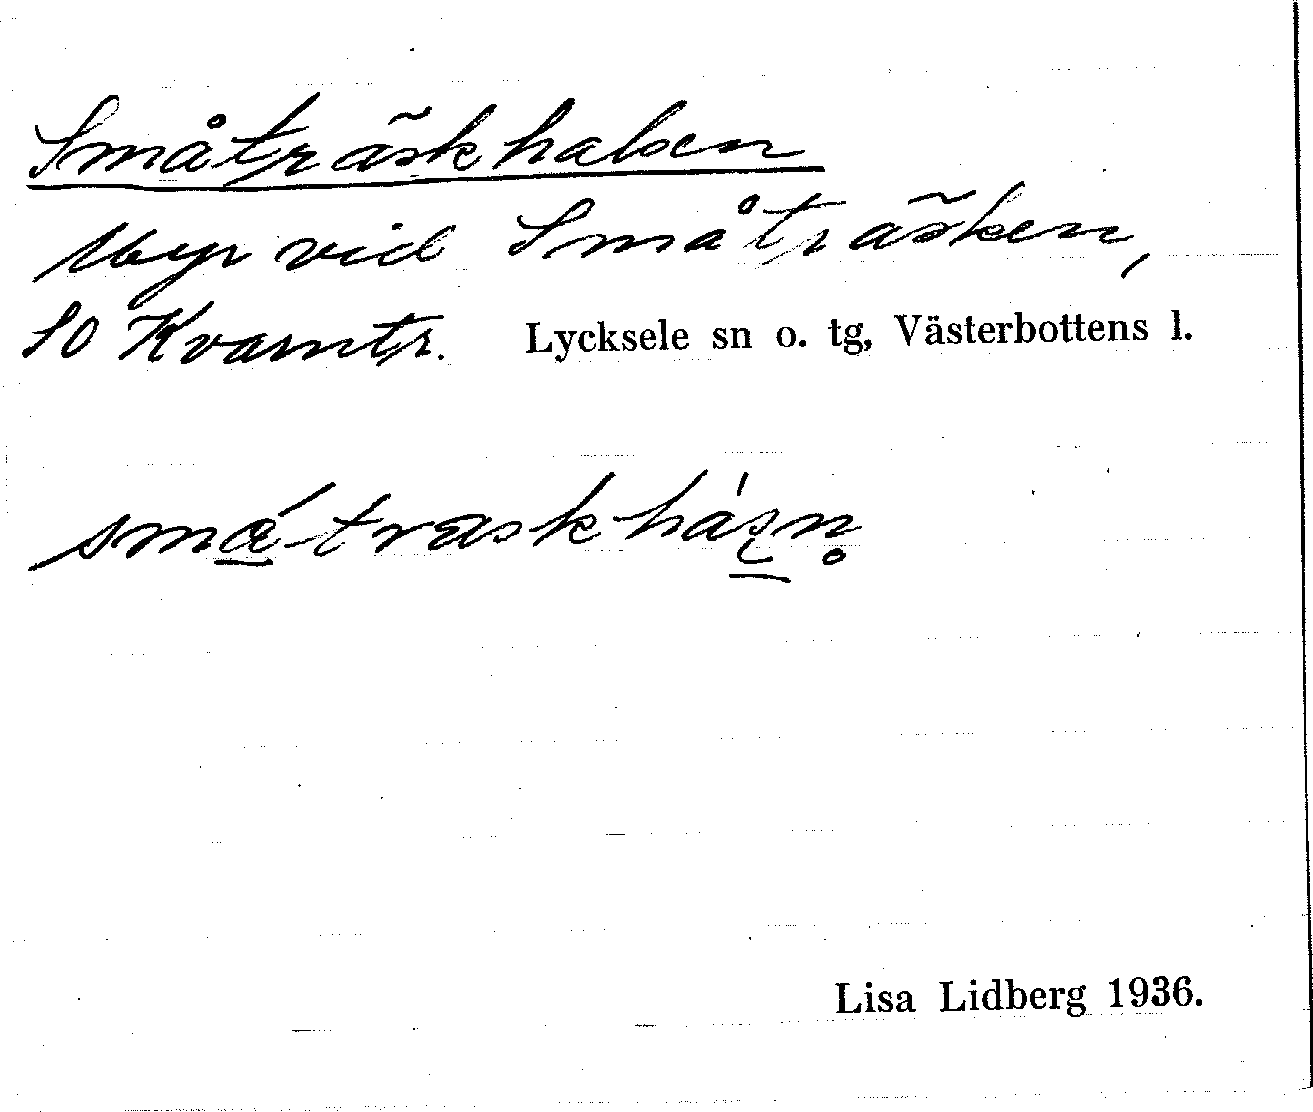 Småträskhalsen
Myr vid Småträsken,
SO Kvarntr. Lycksele sn o. tg, Västerbottens l.
Lisa Lidberg 1936.